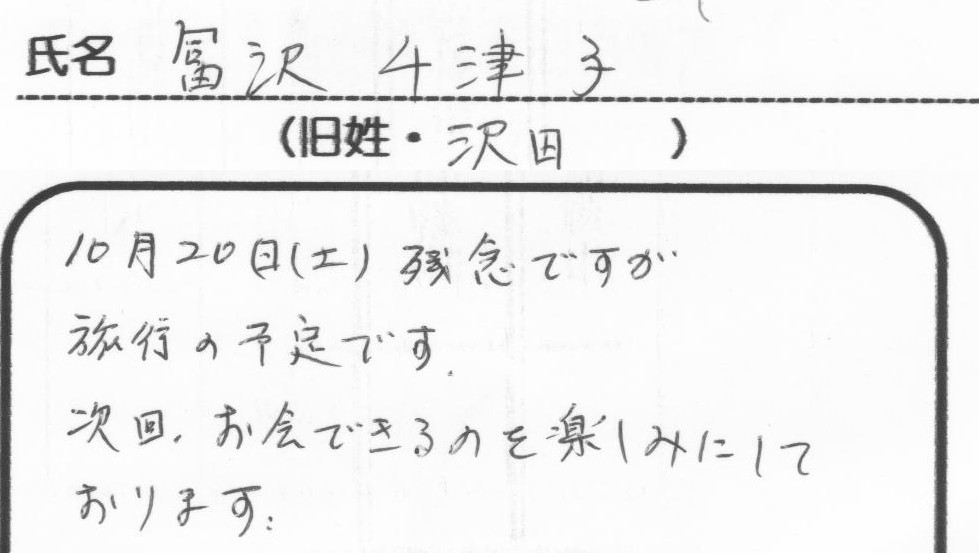 氏名 冨沢 千津子
(旧姓・沢田 )
10月20日(土) 残念ですが
旅行の予定です.
次回、お会できるのを楽しみにして
おります.